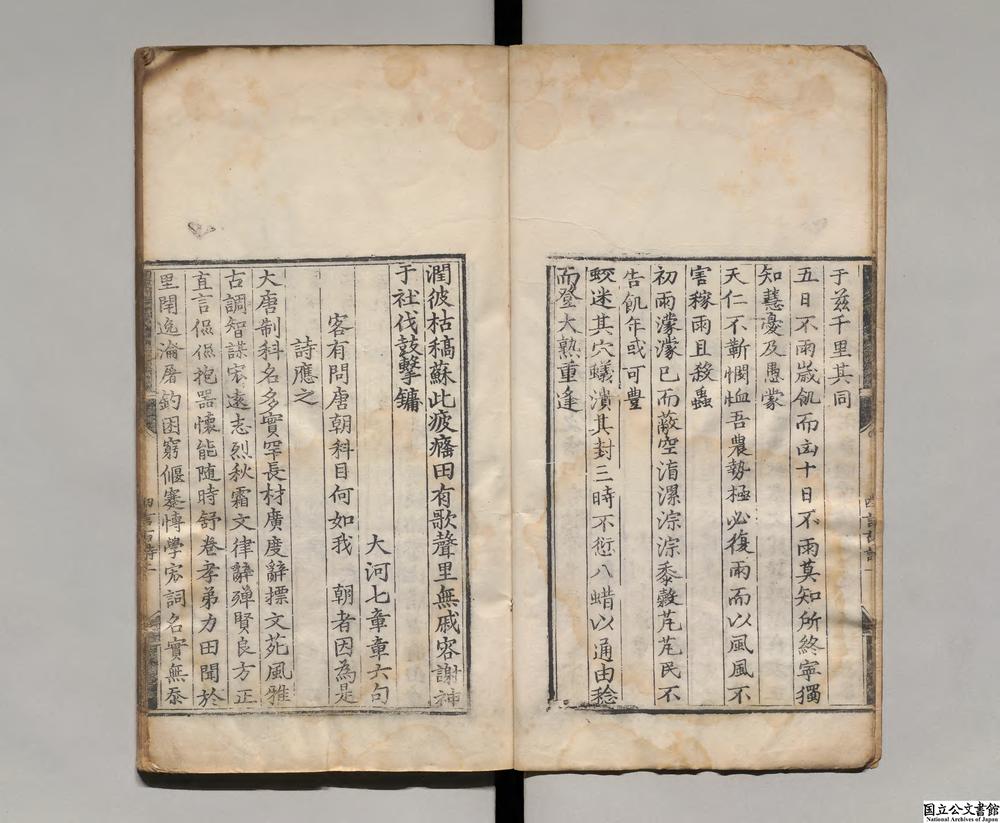 于兹千里其同
五日不雨歲飢而凶十日不雨莫知所終寧獨
知慧憂及愚蒙
天仁不靳憫恤吾農勢極必復雨而以風風不
害稼雨且殺蟲
初雨濛濛已而蔽空滑漯淙淙黍穀芃芃民不
告飢年或可豊
蛟迷其穴蟻潰其封三時不愆八蜡以通由稔
而登大熟重逢
潤彼枯槁蘇此疲癃田有歌聲里無戚容謝神
于社伐鼓擊鏞
大河七章章六句
客有問唐朝科目何如我 朝者因為是
詩應之
大唐制科名多實罕長材廣度辭摽文苑風雅
古調智謀宏遠志烈秋霜文律辭殫賢良方正
直言侃侃抱器懷能隨時舒卷孝弟力田聞於
里閈逸淪屠釣困窮偃蹇博學宏詞名實無忝
四言古詩一
四言古詩二
国立公文書館
National Archives of Japan